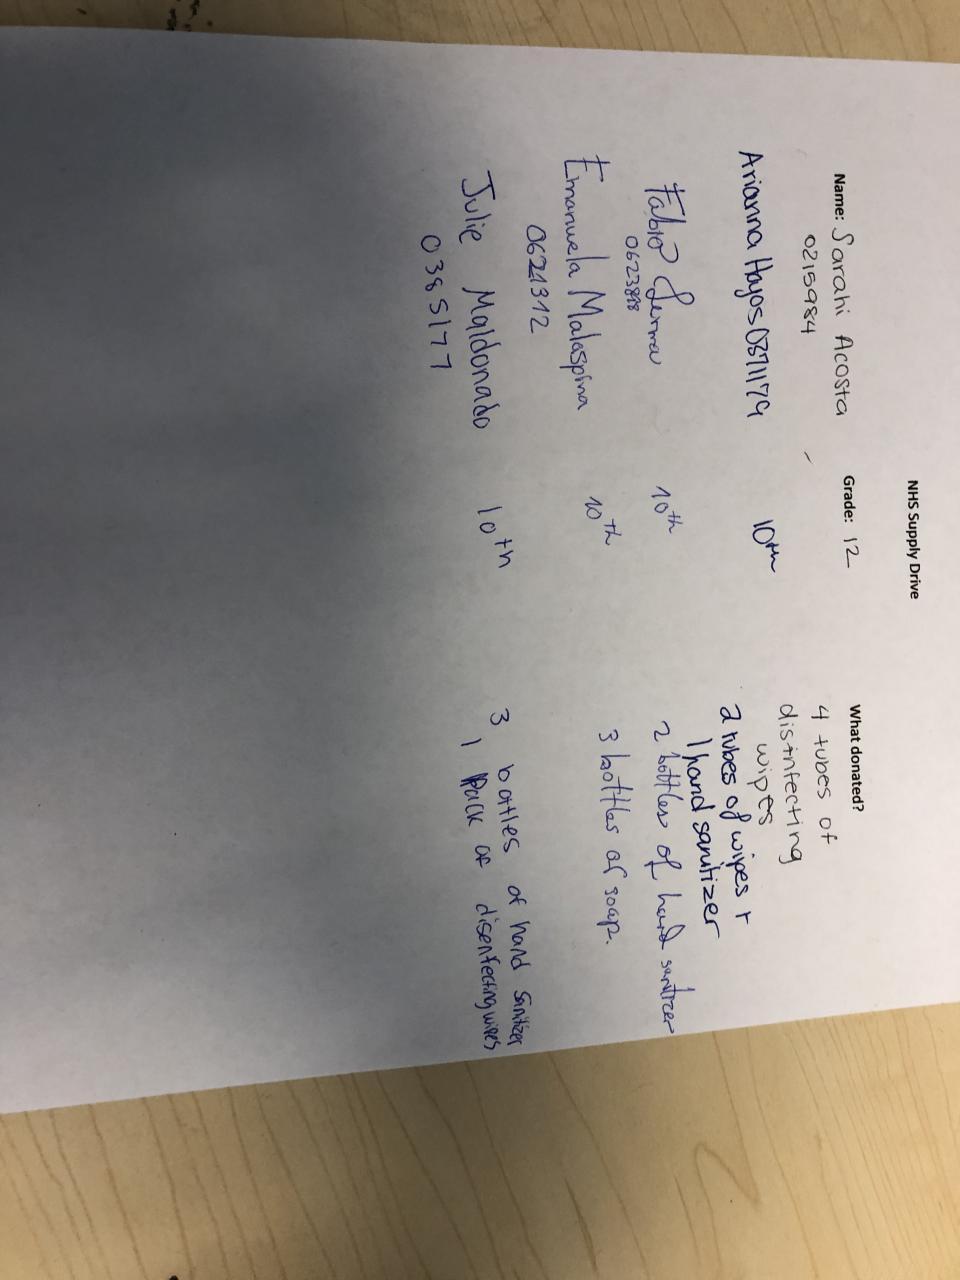 NHS Supply Drive
Name: Sarahi Acosta Grade: 12 What donated?
0215984 4 tubes of
disinfecting
wipes
Arianna Hoyos 0371179 10th 2 tubes of wipes +
1 hand sanitizer
Fabio 10th 2 bottles of hand sanitizer
Emanuela Malaspina 10th 3 bottles of soap.
0621312
Julie Maldonado 10th 3 bottles of hand sanitizer
0385177 1 pack of disenfecting wipes